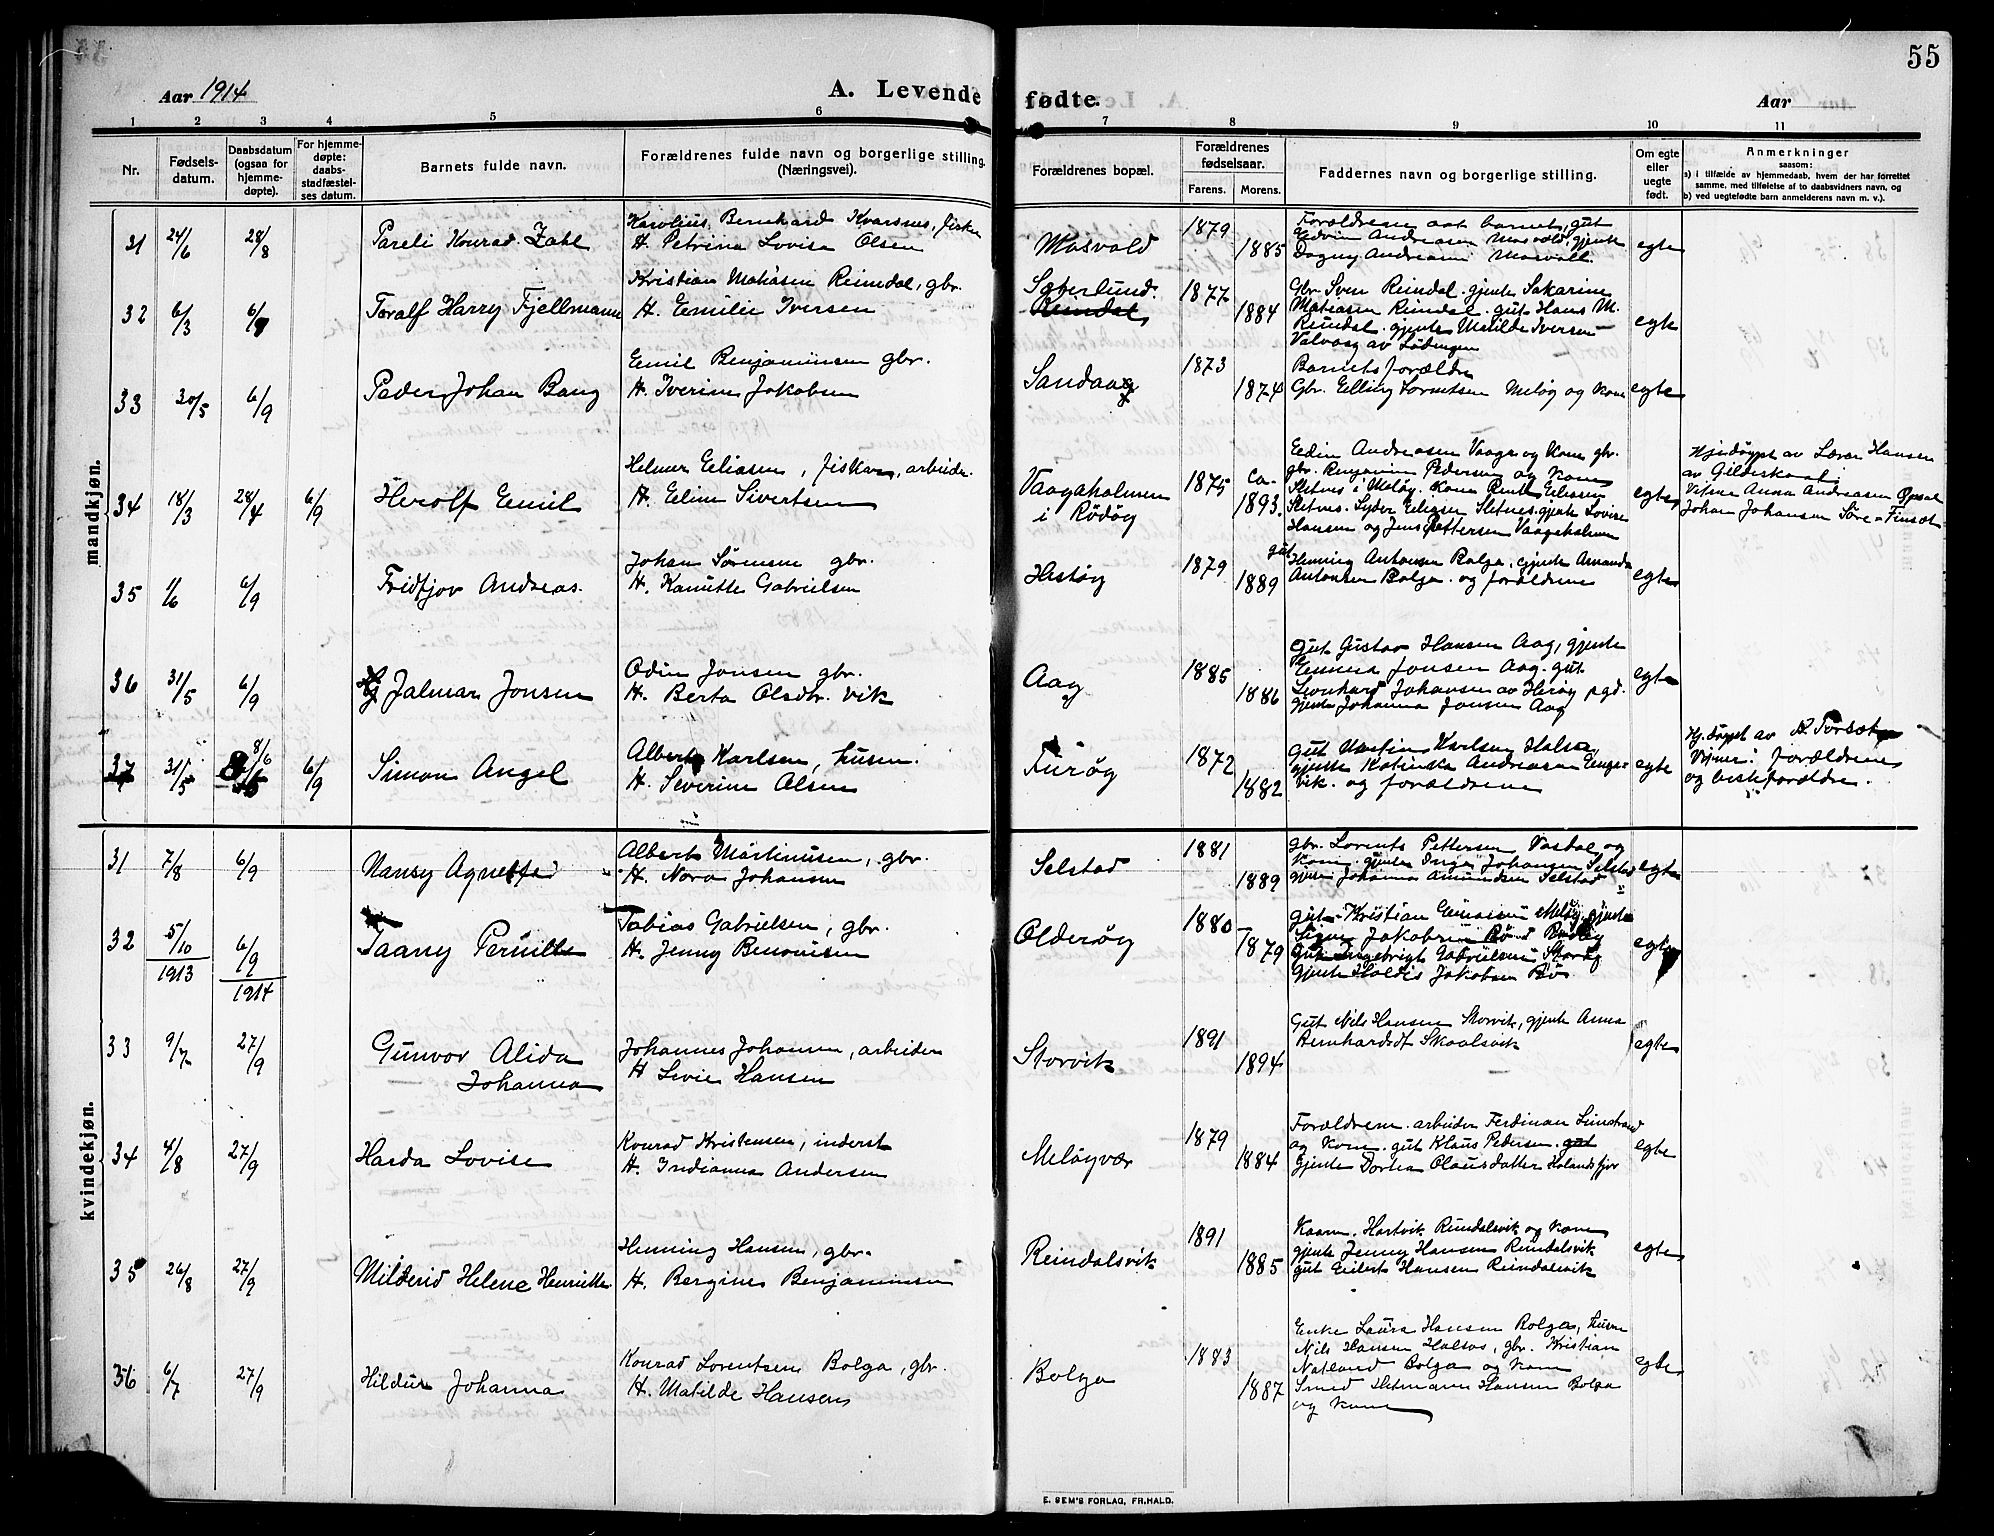 55
Aar 1914
A. Levende fødte.
Aar
1 2 3 4 5 6 7 8 9 10 11
Nr.
Fødselsdatum.
Daabsdatum (ogsaa for hjemmedøpte).
For hjemmedøpte: daabsstadfæstelses datum.
Barnets fulde navn.
Forældrenes fulde navn og borgerlige stilling. (Næringsvei).
Forældrenes bopæl.
Forældrenes fødselsaar.
Farens. Morens.
Faddernes navn og borgerlige stilling.
Om egte eller uegte født.
Anmerkninger
saasom:
a) i tilfælde av hjemmedaab, hvem der har forrettet samme, med tilføielse af to daabsvidners navn, og
b) ved uegtefødte barn anmelderens navn m. v.).
mandkjøn.
31 24/6 28/8 Pareli Konrad Zahl
Karolius Bernhard Kvarsnes, fisker
H. Petrina Lovise Olsen
Mosvold 1879 1885
Forældrene aat barnet, gut
Edvin Andreasen Mosvold, gjente
Dagny Andreasen Mosvold
egte
32 6/3 6/9 Toralf Harry Fjellmann
Kristian Matiasen Reindal, gbr.
H. Emilie Iversen
Reindal 1877 1884
Gbr. Sven Reindal. gjente Sakarine
Matiasen Reindal. gut Hans M.
Reindal. gjente Matilde Iversen
Valvaag av Lødingen
egte
33 30/5 6/9 Peder Johan Bang
Emil Benjaminsen gbr.
H. Iverine Jakobsen
Sandaag 1873 1874
Barnets forældre
Gbr. Elling Lorentsen Meløy og kone
egte
34 18/3 28/4 6/9 Herolf Emil
Helmer Eliasen, fisker, arbeider.
H. Eline Sivertsen
Vaagaholmen
i Rødøy
1875 ca. 1893.
Edin Andreasen Vaage og kone gbr.
gbr. Benjamin Pedersen og kone
Sletnes i Meløy. Kone Eliasen
Sletnes. Eliasen Sletnes. gjente Lovise
Hansen og Jens Pettersen Vaagaholmen
egte
Hjdøpt av Lærer Hansen
av Gildeskaal
Vitner Anna Andreasen Opsal
Johan Johansen Søre-Finset
35 1/6 6/9 Fridtjov Andreas.
Johan Sørensen gbr.
H. Kanutte Gabrielsen
Hestøy 1879 1889
gut Henning Antonsen Bolga, gjente Amanda
Antonsen Bolga. og forældrene
egte
36 31/5 6/9 Hjalmar Jonsen
Odin Jonsen gbr.
H. Berta Olsdtr. Vik
Aag 1885 1886
Gut Gustav Hansen Aag, gjente
Emma Jonsen Aag. gut
Leonhard Johansen av Herøy pgd.
gjente Johanna Jonsen Aag
egte
37 31/5 8/6 6/9 Simon Angel
Albert Karlsen, husm.
H. Severine Olsen
Furøy 1872 1882
gut Martin Karlsen Halsa,
gjente Katinka Andreasen Enga-
vik. og forældrene
egte
Hj.døpt av A. Torset
Vitner: forældrene
og besteforældre.
kvindekjøn.
31 7/8 6/9 Nansy Agnette
Albert Martinusen, gbr.
H. Nora Johansen
Selstad 1881 1889
gbr. Lorents Pettersen Vasdal og
kone. gjente Inga Johansen Selstad
gjente Johanna Amundsen Selstad
egte
32 5/10 1913 6/9 1914 Taany Pernille
Tobias Gabrielsen, gbr.
H. Jenny Benonisen
Olderøy 1880 1879
gut Kristian Meløy. gjente
Signe Jakobsen
Gut Ingebrigt Gabrielsen Støtt
Gjente Haldis Jakobsen Bø
egte
33 9/7 27/9 Gunvor Alida
Johanna
Johannes Johansen, arbeider
H. Livie Hansen
Storvik 1891 1894
Gut Nils Hansen Storvik, gjente Anna
Bernhardsdt Skaalsvik
egte
34 4/8 27/9 Harda Lovise
Konrad Kristensen, inderst
H. Indianna Andersen
Meløyvær 1879 1884
Forældrene. arbeider Ferdinan Lundstrand
og kone. gut Klaus Pedersen. gut
Gjente Dortea Olausdatter Holandsfjor
egte
35 26/8 27/9 Milderid Helene Henriette
Henning Hansen, gbr.
H. Bergine Benjaminsen
Reindalsvik 1891 1885
Kaarm. Hartvik Reindalsvik og kone
gjente Jenny Hansen Reindalsvik
gut Eilert Hansen Reindalsvik
egte
36 6/7 27/9 Hildur Johanna
Konrad Lorentsen Bolga, gbr.
H. Matilde Hansen
Bolga 1883 1887
Enke Laura Hansen Bolga, husm
Nils Hansen Halsos, gbr. Kristian
Natland Bolga og kone
Smed Hermann Hansen Bolga
og kone
egte
E. SEM'S FORLAG, FR.HALD.